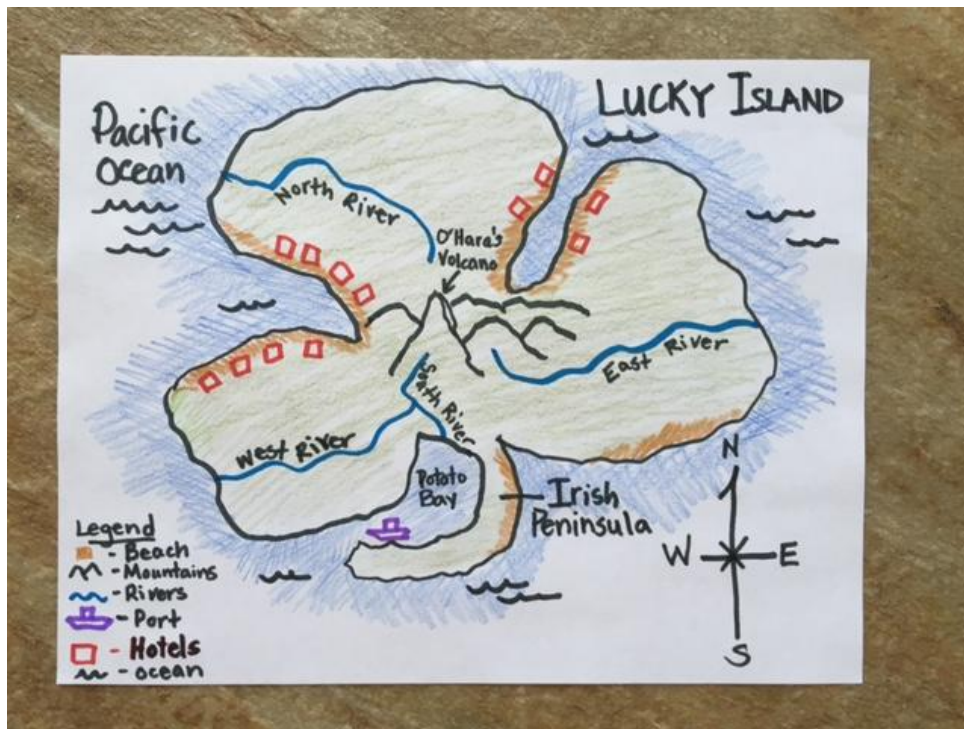 LUCKY ISLAND
Pacific
Ocean
North River
O'Hara's
Volcano
East River
South River
West River
Potato
Bay
Irish
Peninsula
N
W E
S
Legend
- Beach
- Mountains
- Rivers
- Port
- Hotels
- ocean